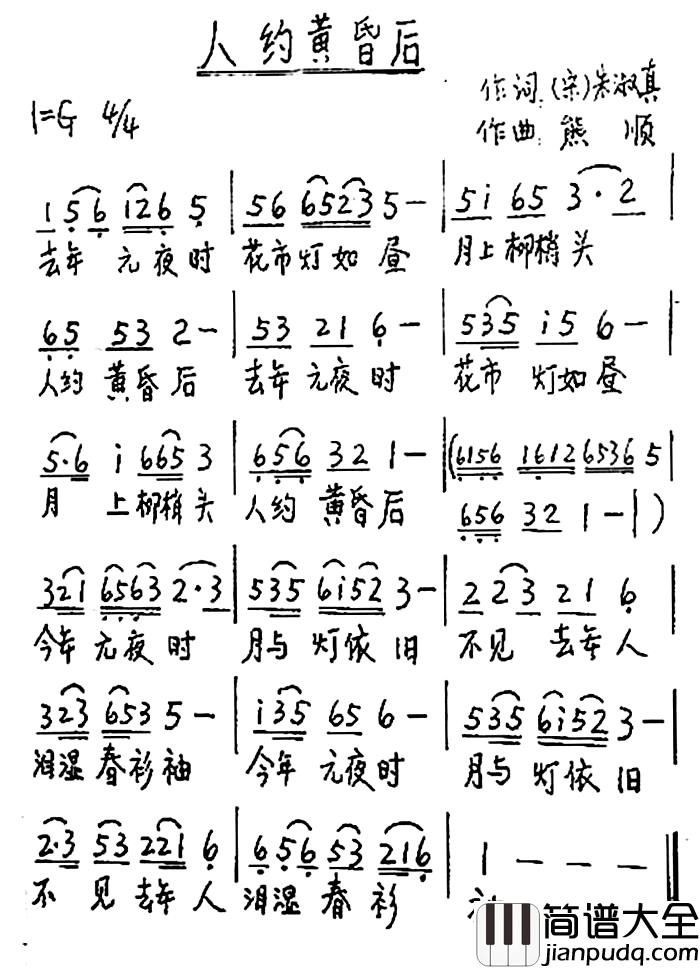 人约黄昏后
作词:(宋)朱淑真
1=G 4/4
作曲:熊 顺
1 5 6 1 2 6 5 | 5 6 6 5 2 3 5 — | 5 i 6 5 3 · 2 |
去年 元夜时 花市灯如昼 月上柳梢头
6 5 5 3 2 — | 5 3 2 1 6 — | 5 3 5 i 5 6 — |
人约黄昏后 去年元夜时 花市 灯如昼
5 · 6 i 6 6 5 3 | 6 5 6 3 2 1 — | (6 1 5 6 1 6 1 2 6 5 3 6 5 |
月 上柳梢头 人约 黄昏后
6 5 6 3 2 1 — | )
3 2 1 6 5 6 3 2 · 3 | 5 3 5 6 i 5 2 3 — | 2 2 3 2 1 6 |
今年元夜时 月与灯依旧 不见 去年人
3 2 3 6 5 3 5 — | i 3 5 6 5 6 — | 5 3 5 6 i 5 2 3 — |
泪湿春衫袖 今年 元夜时 月与灯依旧
2 · 3 5 3 2 2 1 6 | 6 5 6 5 3 2 1 6 | 1 — — — ‖
不 见去年人 泪湿 春 衫
简谱大全
jianpudq.com